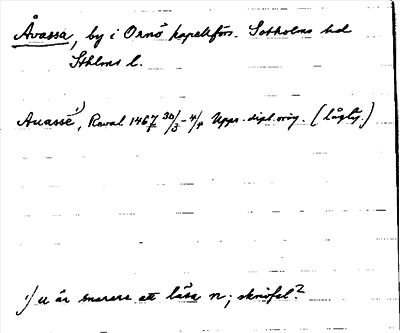 Åvassa, by i Ornö kapellförs. Sotholms hd
Sthlms l.
Auassé¹⁾, Reval 1467 30/3-4/4 Upps. dipl. orig. (lågty.)
¹⁾ u är snarare att läsa n; skrivfel?